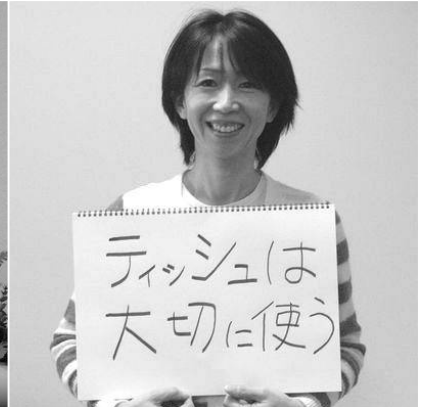 ティッシュは
大切に使う